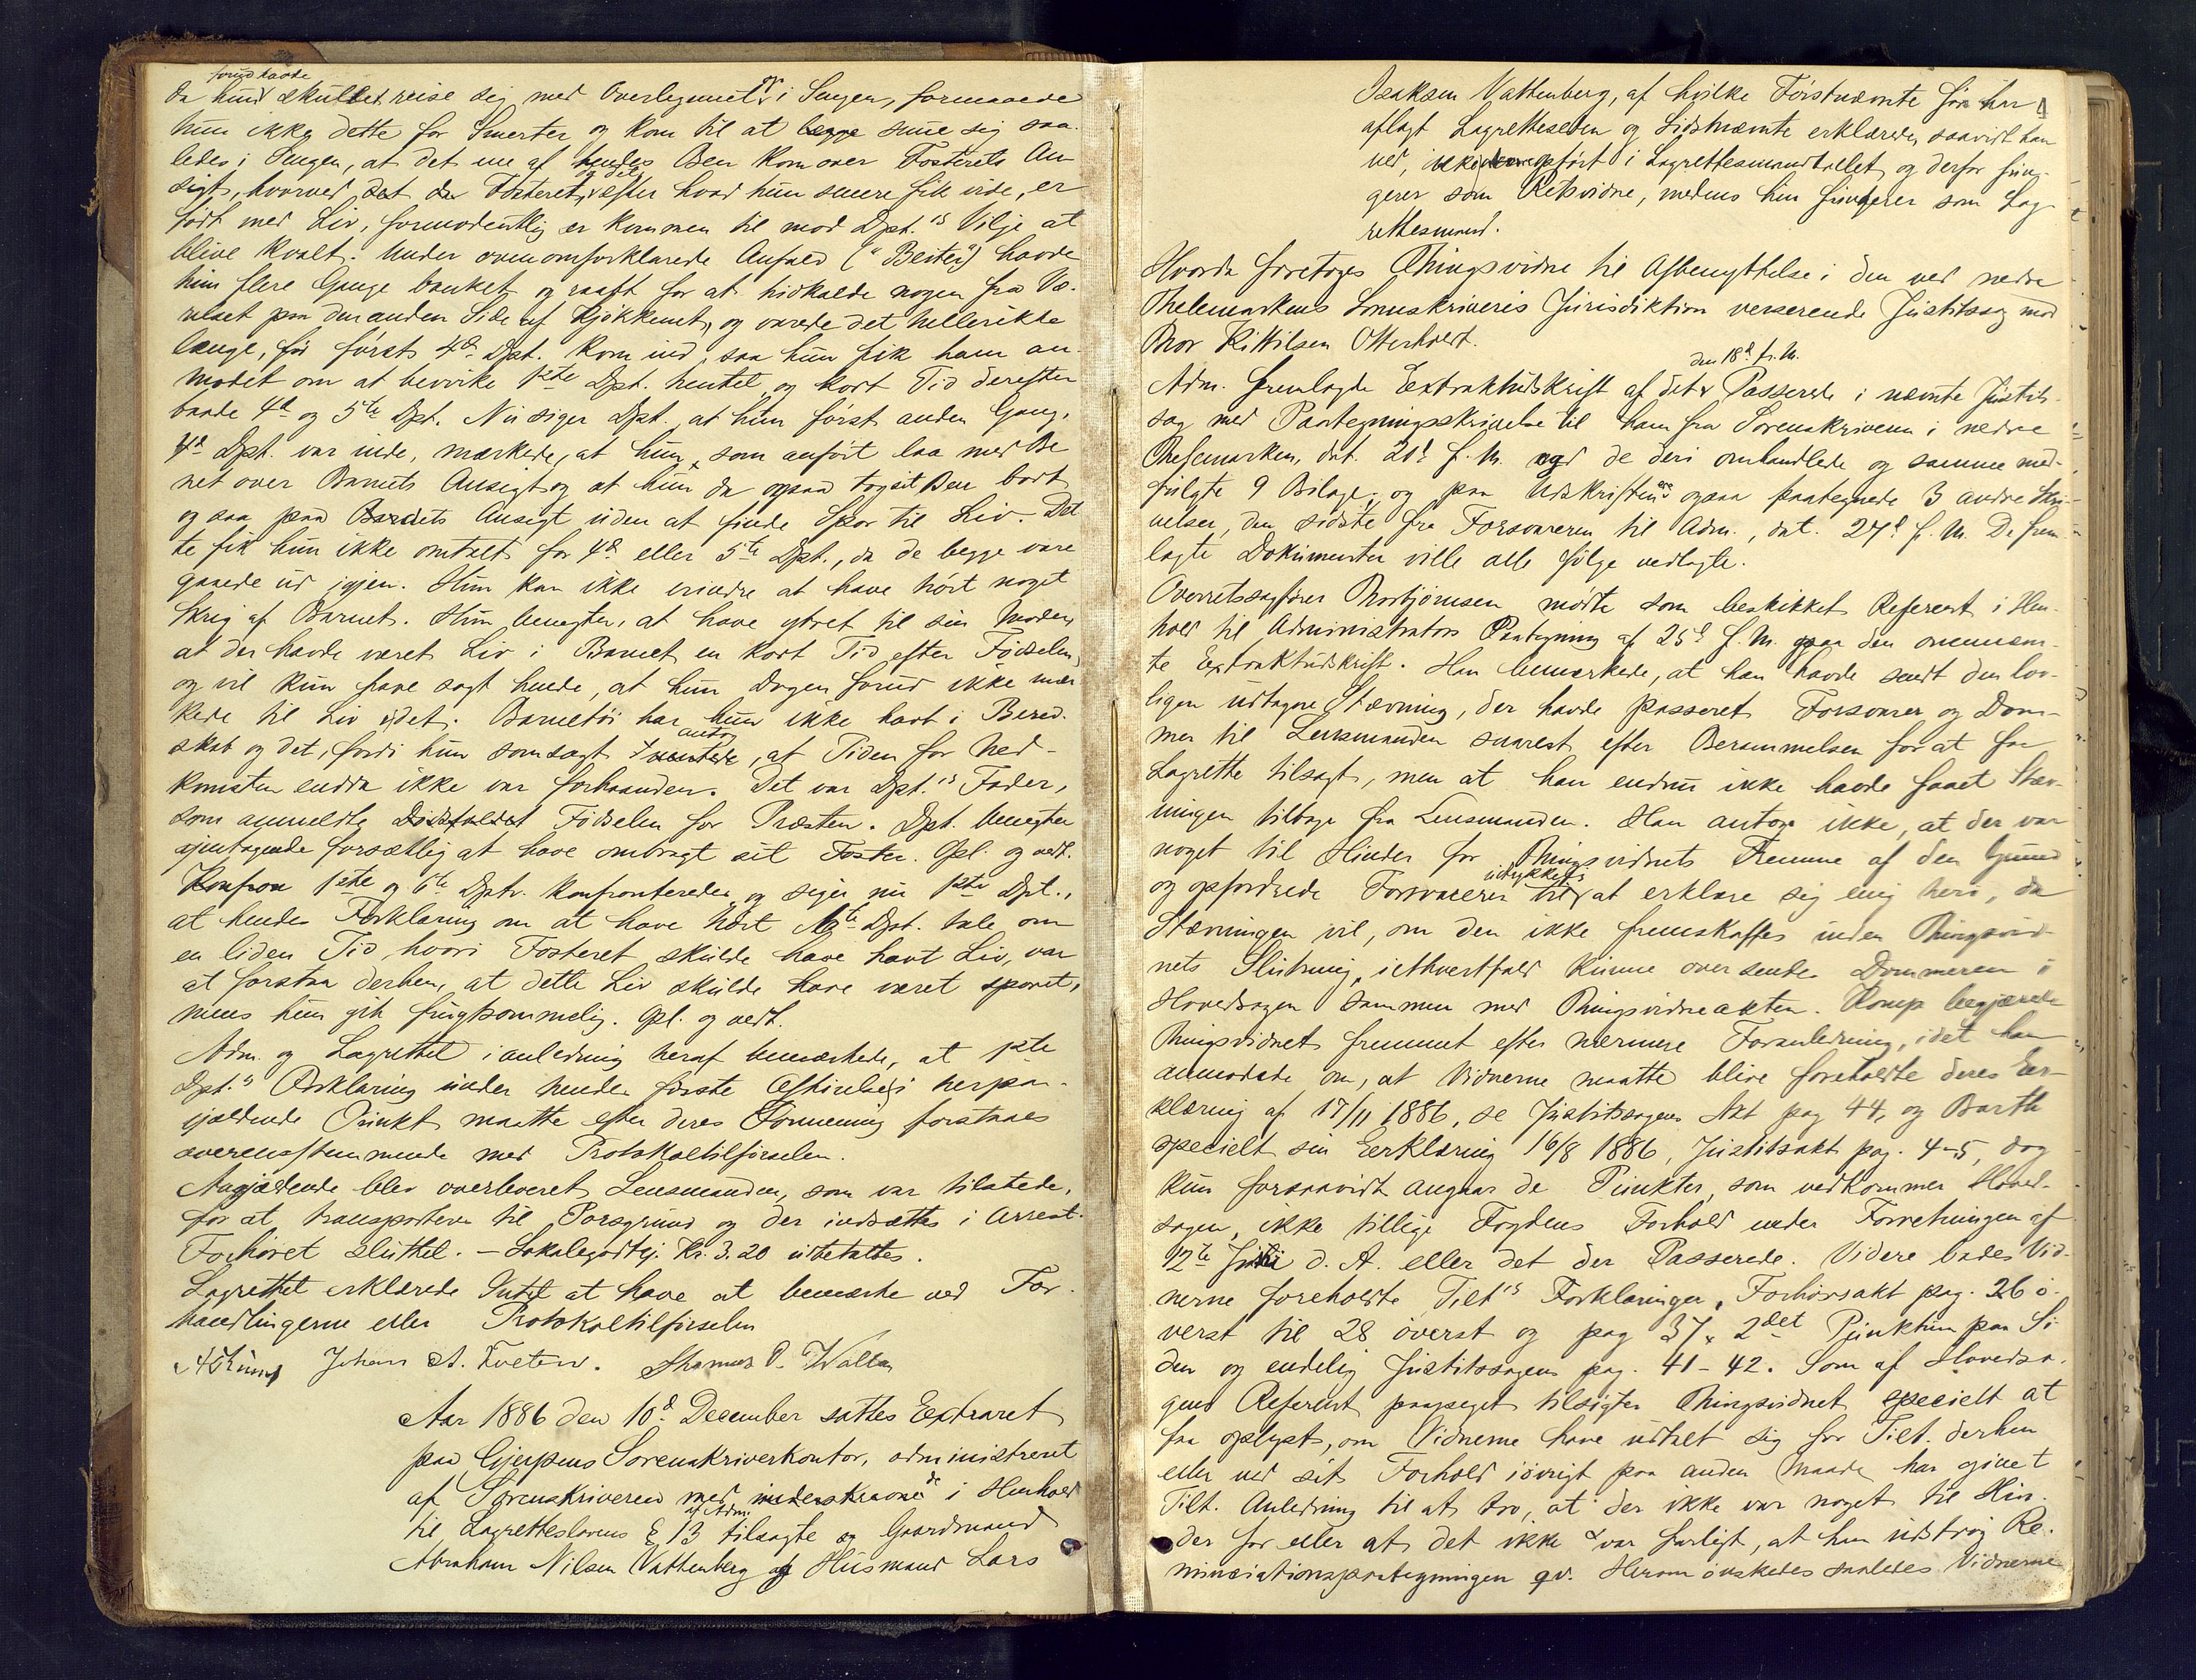 forud havde
da hun skulde reise sig med Overlegemet op i Sengen, formaaede
hun ikke dette for Smerter og kom til at lægge snue sig saa-
ledes i Sengen, at det ene af hendes Ben kom over Fosterets An-
sigt, hvorved det da Fosteret, og det efter hvad hun senere fik vide, er
født med Liv, formodentlig er kommen til mod Dpt.'s Vilje at
blive kvalt. Under ovenomforklarede Anfald ("Beiter") havde
hun flere Gange banket og raabt for at hidkalde nogen fra Væ-
relset paa den anden Side af Kjøkkenet, og varede det heller ikke
længe, før først 4de Dpt. kom ind, saa hun fik ham an-
modet om at bevirke 1ste Dpt. hentet og kort Tid derefter
baade 4de og 5te Dpt. Nu siger Dpt. at hun først anden Gang,
4de Dpt. var inde, mærkede, at hun, som anført laa med Be-
net over Barnets Ansigt og at hun da ogsaa tog sit Ben bort
og saa paa Barnets Ansigt uden at finde Spor til Liv. Det-
te fik hun ikke omtalt for 4de eller 5te Dpt., da de begge vare
gaaede ud igjen. Hun kan ikke erindre at have hørt noget
Skrig af Barnet. Hun benegter, at have ytret til sin Moder,
at der havde været Liv i Barnet en kort Tid efter Fødselen,
og vil kun have sagt hende, at hun Dagen forud ikke mær-
kede til Liv i det. Barnetøi har hun ikke havt i Bered-
skab og det, fordi hun som sagt antog, at Tiden for Ned-
komsten endda ikke var forhaanden. Det var Dpt.'s Fader,
som anmeldte Fødselen for Præsten. Dpt. benegter
gjentagende forsætlig at have ombragt sit Foster. Opl. og vedt.
Konfron 1ste og 6te Dptr. konfronteredes og siger nu 1ste Dpt.,
at hendes Forklaring om at have hørt 6te Dpt. tale om
en liden Tid, hvori Fosteret skulde have havt Liv, var
at forstaa derhen, at dette Liv skulde have været sporet,
mens hun gik frugtsommelig. Opl. og vedt.
Adm. og Lagrettet i anledning heraf bemærkede, at 1ste
Dpt.'s Forklaring under hendes første Afhørelse i herpaa-
gjældende Punkt maatte efter deres Formening forstaaes
overensstemmende med Protokoltilførselen.
Angjældende blev overleveret Lensmanden, som var tilstede,
for at transporteres til Porsgrund og der indsættes i Arrest.
Forhøret sluttet. – Lokalegodtgj. Kr. 3.20 udbetaltes.
Lagrettet erklærede Intet at have at bemærke ved For-
handlingerne eller Protokoltilførselen
Johan A. Tveten. Thomas P. Wallen
Aar 1886 den 10de December sattes Extraret
paa Gjerpens Sorenskriverkontor, administreret
af Sorenskriveren med underskrevne i Henhold
til Lagretteslovens § 13 af Adm. tilsagte Gaardmand
Abraham Nilsen Vattenberg og Husmand Lars
4
Isaksen Vattenberg, af hvilke Førstnævnte før har
aflagt Lagretteseden og Sidstnævnte erklærede, saavidt han
ved, ikke opført i Lagrettesmandstallet og derfor fun-
gerer som Retsvidne, medens hin fungerer som Lag-
rettesmand.
Hvorda foretoges Thingsvidne til Afbenyttelse i den ved nedre
Thelemarkens Sorenskriveris Jurisdiktion verserende Justitssag mod
Thor Kittilsen Otterholt.
Adm. fremlagde Extraktudskrift af det den 18de f. M. Passerede i nævnte Justits-
sag med Paategningsskrivelse til ham fra Sorenskriveren i nedre
Thelemarken, dat. 20de f. M. og de deri omhandlede og samme med-
fulgte 9 Bilage, og paa Udskriften ere ogsaa paategnede 3 andre Skri-
velser, den sidste fra Forsvareren til Adm., dat. 27de f. M. De frem-
lagte Dokumenter ville alle følge vedlagte.
Overretssagfører Thorbjørnsen mødte som beskikket Referent i Hen-
hold til Administrators Paategning af 25de f. M. paa den ovennævn-
te Extraktudskrift. Han bemærkede, at han havde sendt den lov-
ligen udtagne Stævning, der havde passeret Forsvarer og Dom-
mer til Lensmanden snarest efter Berammelsen for at faa
Lagrette tilsagt, men at han endnu ikke havde faaet Stæv-
ningen tilbage fra Lensmanden. Han antog ikke, at der var
noget til Hinder for Thingsvidnets Fremme af den Grund
og opfordrede Forsvareren udtrykkelig til at erklære sig enig heri, da
Stævningen vil, om den ikke fremskaffes inden Thingsvid-
nets Slutning, i ethvertfald kunne oversendes Dommeren i
Hovedsagen sammen med Thingsvidneakten. Komp begjærede
Thingsvidnet fremmet efter nærmere Foranledning, idet han
anmodede om, at Vidnerne maatte blive foreholdte deres Er-
klæring af 17/11 1886, se Justitssagens Akt pag 44, og Barth
specielt sin Erklæring 16/8 1886, Justitsakt pag. 4-5, dog
kun forsaavidt angaar de Punkter, som vedkommer Hoved-
sagen, ikke tillige Fogdens Forhold under Forretningen af
12te Juni d. A. eller det der Passerede. Videre bades Vid-
nerne foreholdte Tilt's Forklaringer, Forhørsakt pag. 26 ø-
verst til 28 øverst og pag 37, 2det Punktum paa Si-
den og endelig Justitssagens pag. 41-42. Som af Hovedsa-
gens Referent paapeget tilsigter Thingsvidnet specielt at
faa oplyst, om Vidnerne have udtalt sig for Tilt. derhen
eller ved sit Forhold iøvrigt paa anden Maade har givet
Tilt. Anledning til at tro, at der ikke var noget til Hin-
der for eller at det ikke var farligt, at han udstrøg Re-
nunciationspaategningen qv. Herom ønskedes saaledes Vidnerne